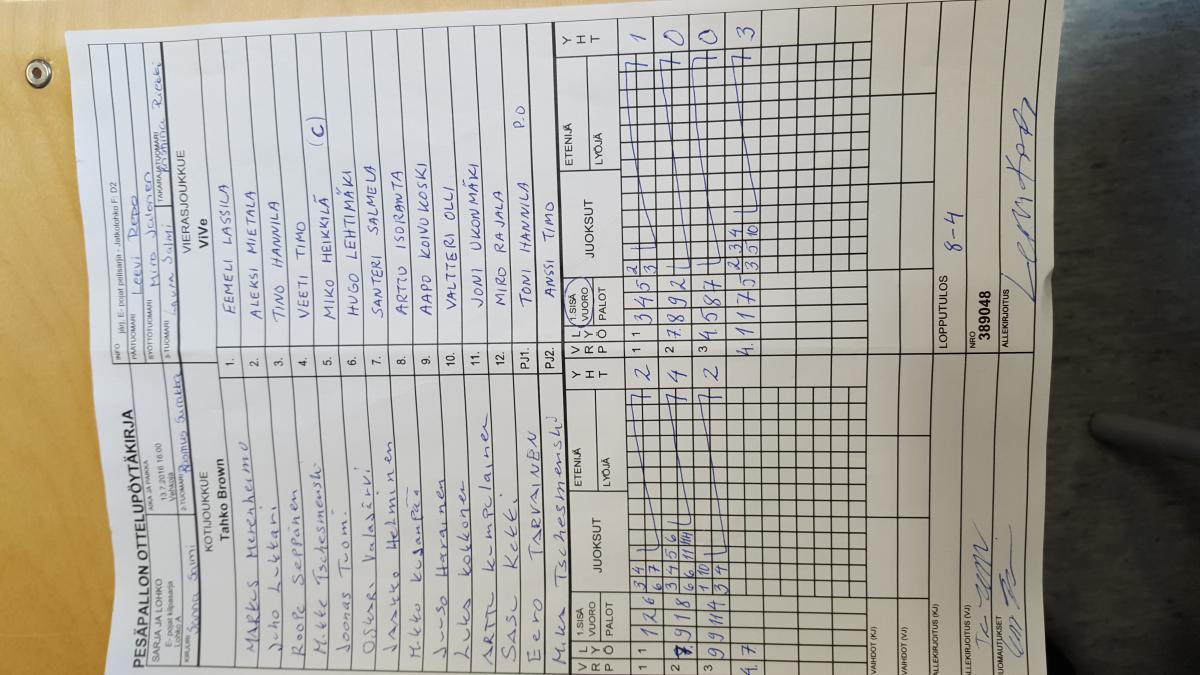 PESÄPALLON OTTELUPÖYTÄKIRJA
SARJA JA LOHKO
E- pojat kilpasarja
Lohko A
AIKA JA PAIKKA
13.7.2016 16:00
INFO järj. E- pojat pelisarja - Jatkolohko F: D2
PÄÄTUOMARI Leevi Repo
SYÖTTÖTUOMARI Miro Jalonen
KIRJURI Sanna Salmi
2-TUOMARI Rasmus
3-TUOMARI Laura Salmi
TAKARAJATUOMARI
KOTIJOUKKUE
Tahko Brown
VIERASJOUKKUE
ViVe
Markus Merenheimo
1. EEMELI LASSILA
Juho Lukkari
2. ALEKSI MIETALA
Roope Seppänen
3. TINO HANNILA
Mikke Tschesmenski
4. VEETI TIMO
Joonas Tuomi
5. MIKO HEIKKILÄ (C)
Oskari Valasjärvi
6. HUGO LEHTIMÄKI
Jaakko Helminen
7. SANTERI SALMELA
8. ARTTU ISORANTA
Juuso Harainen
9. AAPO KOIVUKOSKI
Luka Kokkonen
10. VALTTERI OLLI
Artti
11. JONI UKONMÄKI
Sasu Kekki
12. MIRO RAJALA
Eero TARVAINEN
PJ1. TONI HANNILA P.O
Mika Tschesmenski
PJ2. ANSSI TIMO
V R P L Y Ö 1.SISÄ VUORO PALOT JUOKSUT ETENIJÄ LYÖJÄ Y H T
V R P L Y Ö 1.SISÄ VUORO PALOT JUOKSUT ETENIJÄ LYÖJÄ Y H T
1 1 1 2 6 3 4 2
6 7
1 1 3 4 5 2 1
3
2 7 9 1 8 3 4 5 6 4
2 7 8 9 2 0
3 9 9 11 4 1 10 2
3 4
3 4 5 8 7 0
4. 7
4. 11 1 7 5 2 3 4 3
3 5 10
VAIHDOT (KJ)
VAIHDOT (VJ)
ALLEKIRJOITUS (KJ)
LOPPUTULOS 8-4
ALLEKIRJOITUS (VJ)
NRO
389048
HUOMAUTUKSET
ALLEKIRJOITUS